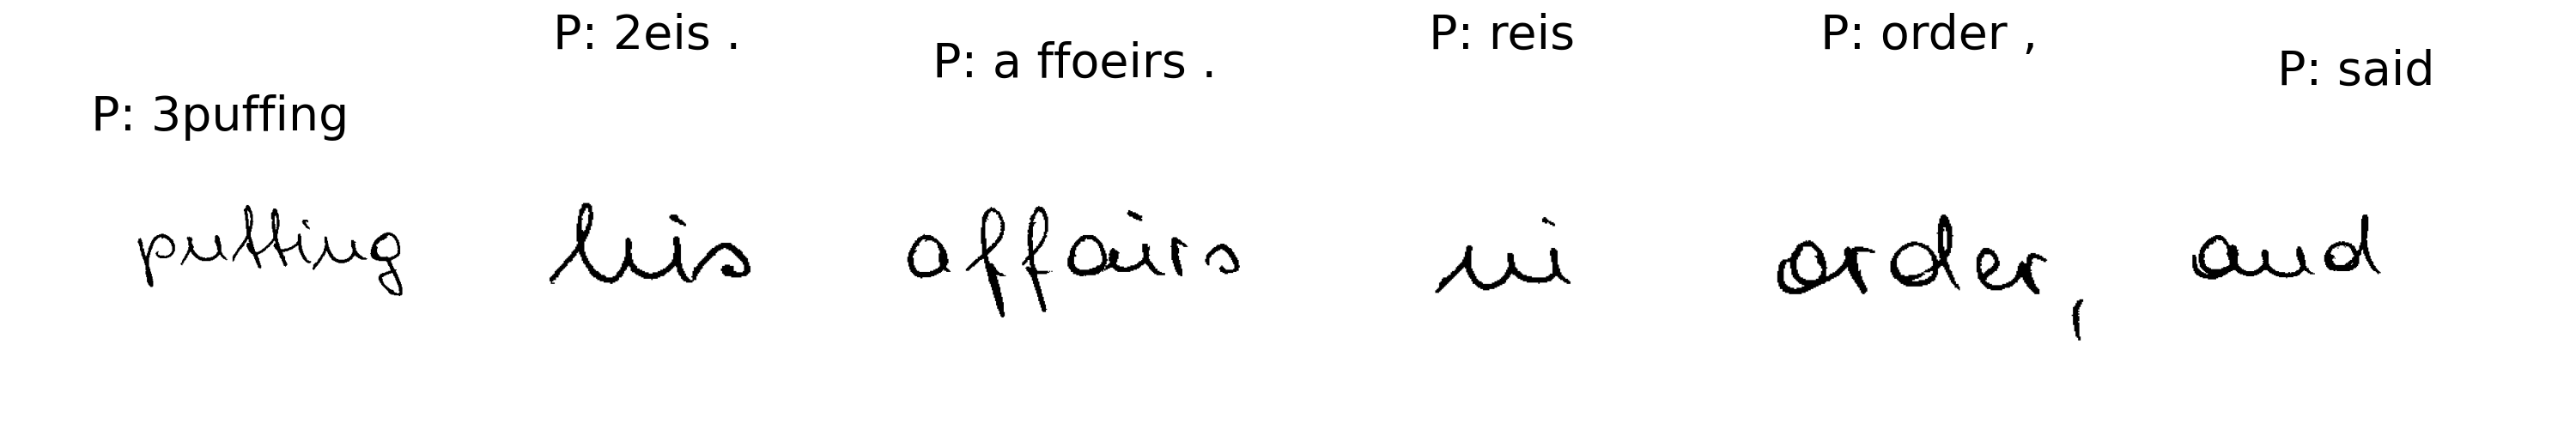 P: 3puffing P: 2eis . P: a ffoeirs . P: reis P: order , P: said
putting his affairs in order, and